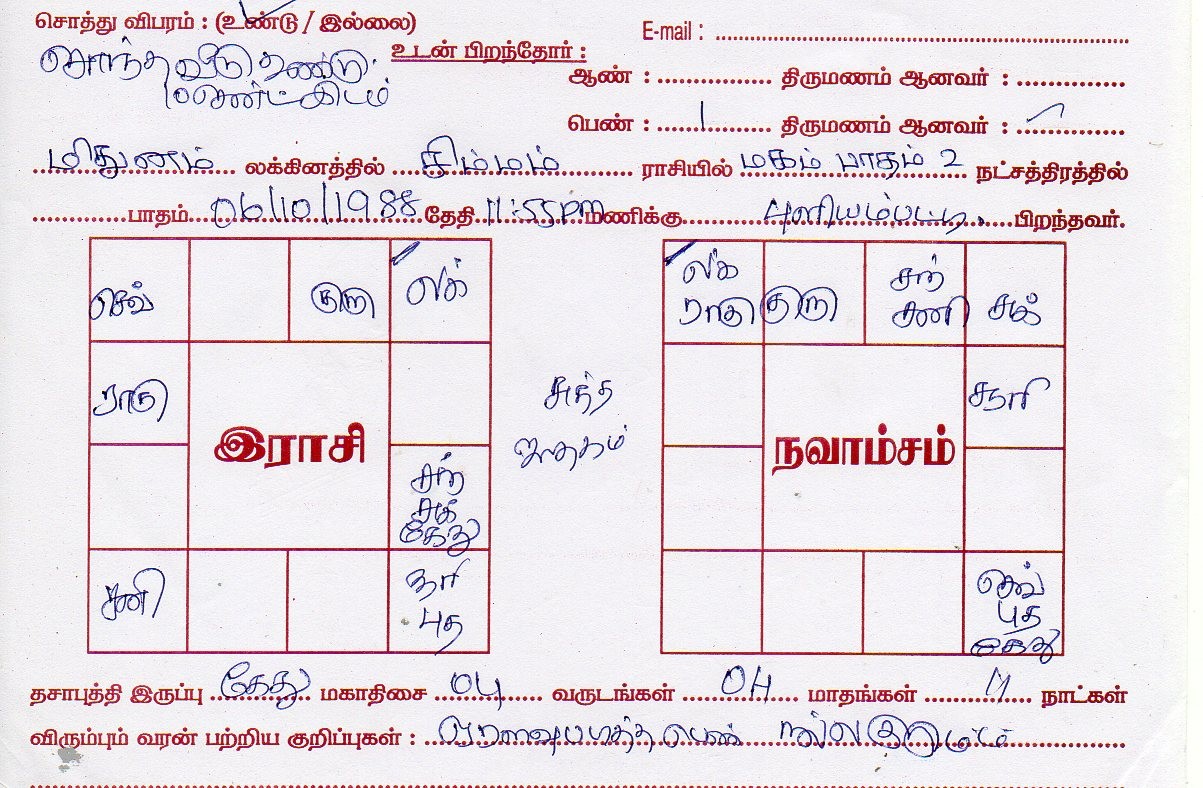 சொத்து விபரம் : (உண்டு / இல்லை)
E-mail :
சொந்த வீடு உண்டு.
உடன் பிறந்தோர் :
ஆண் : திருமணம் ஆனவர் :
பெண் : 1 திருமணம் ஆனவர் :
மிதுனம் லக்கினத்தில் சிம்மம் ராசியில் மகம் பாதம் 2 நட்சத்திரத்தில்
பாதம் 06/10/1988 தேதி 11:55pm மணிக்கு புளியம்பட்டி. பிறந்தவர்.
செவ் குரு லக்
ராகு
இராசி
சந் சுக் கேது
சனி சூரி புத
சுத்த
ஜாதகம்
லக் ராகு குரு சந் சனி சுக்
சூரி
நவாம்சம்
செவ் புத கேது
தசாபுத்தி இருப்பு கேது மகாதிசை 04 வருடங்கள் 04 மாதங்கள் 11 நாட்கள்
விரும்பும் வரன் பற்றிய குறிப்புகள் : பெண் நல்ல குடும்பம்